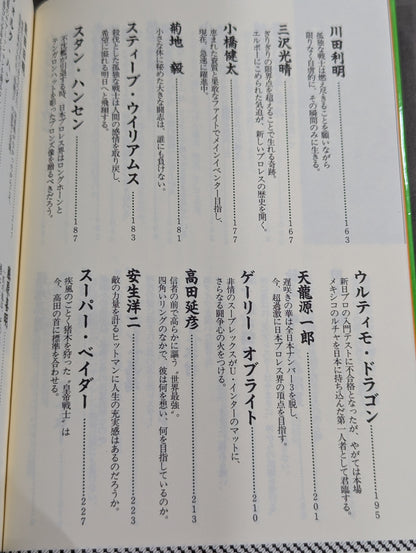 川田利明……163
孤独な戦士は燃え尽きることを願いながら
限りなく自虐的に、その瞬間のみに生きる。
三沢光晴……167
ぎりぎりの限界点を超えることで生れる奇跡。
エルボーにこめられた気迫が、新しいプロレスの歴史を開く。
小橋健太……177
恵まれた資質と果敢なファイトでメインイベンター目指し、
現在、急速に躍進中。
菊地 毅……181
小さな体に秘めた大きな闘志は、誰にも負けない。
スティーブ・ウイリアムス……183
殺伐とした孤独な戦士は人間の感情を取り戻し、
希望に溢れる明日へと飛翔する。
スタン・ハンセン……187
不沈艦が引退する時、日本プロレス界はロングホーンと
テンガロンハットを彫ったブロンズ像を贈るべきだろう。
ウルティモ・ドラゴン……195
新日プロの入門テストに不合格となったが、やがては本場
メキシコのルチャを日本に持ち込んだ第一人者として君臨する。
天龍源一郎……201
遅咲きの華は全日本ナンバー3を脱し、
今、超過激に日本プロレス界の頂点を目指す。
ゲーリー・オブライト……210
非情のスープレックスがU・インターのマットに、
さらなる闘争心の火をつける。
高田延彦……213
信者の前で高らかに謳う〝世界最強〟。
四角いリングのなかで、彼は何を想い、何を目指しているのか。
安生洋二……223
敵の力量を計るヒットマンに人生の充実感はあるのだろうか。
スーパー・ベイダー……227
疾風のごとく猪木を狩った〝皇帝戦士〟は
今、高田の首に標準を合わせる。